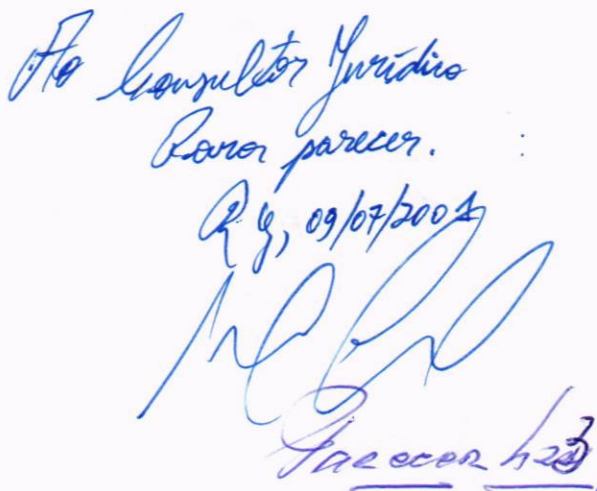 Ao Consultor Jurídico
Para parecer.
RJ, 09/07/2001
Parecer